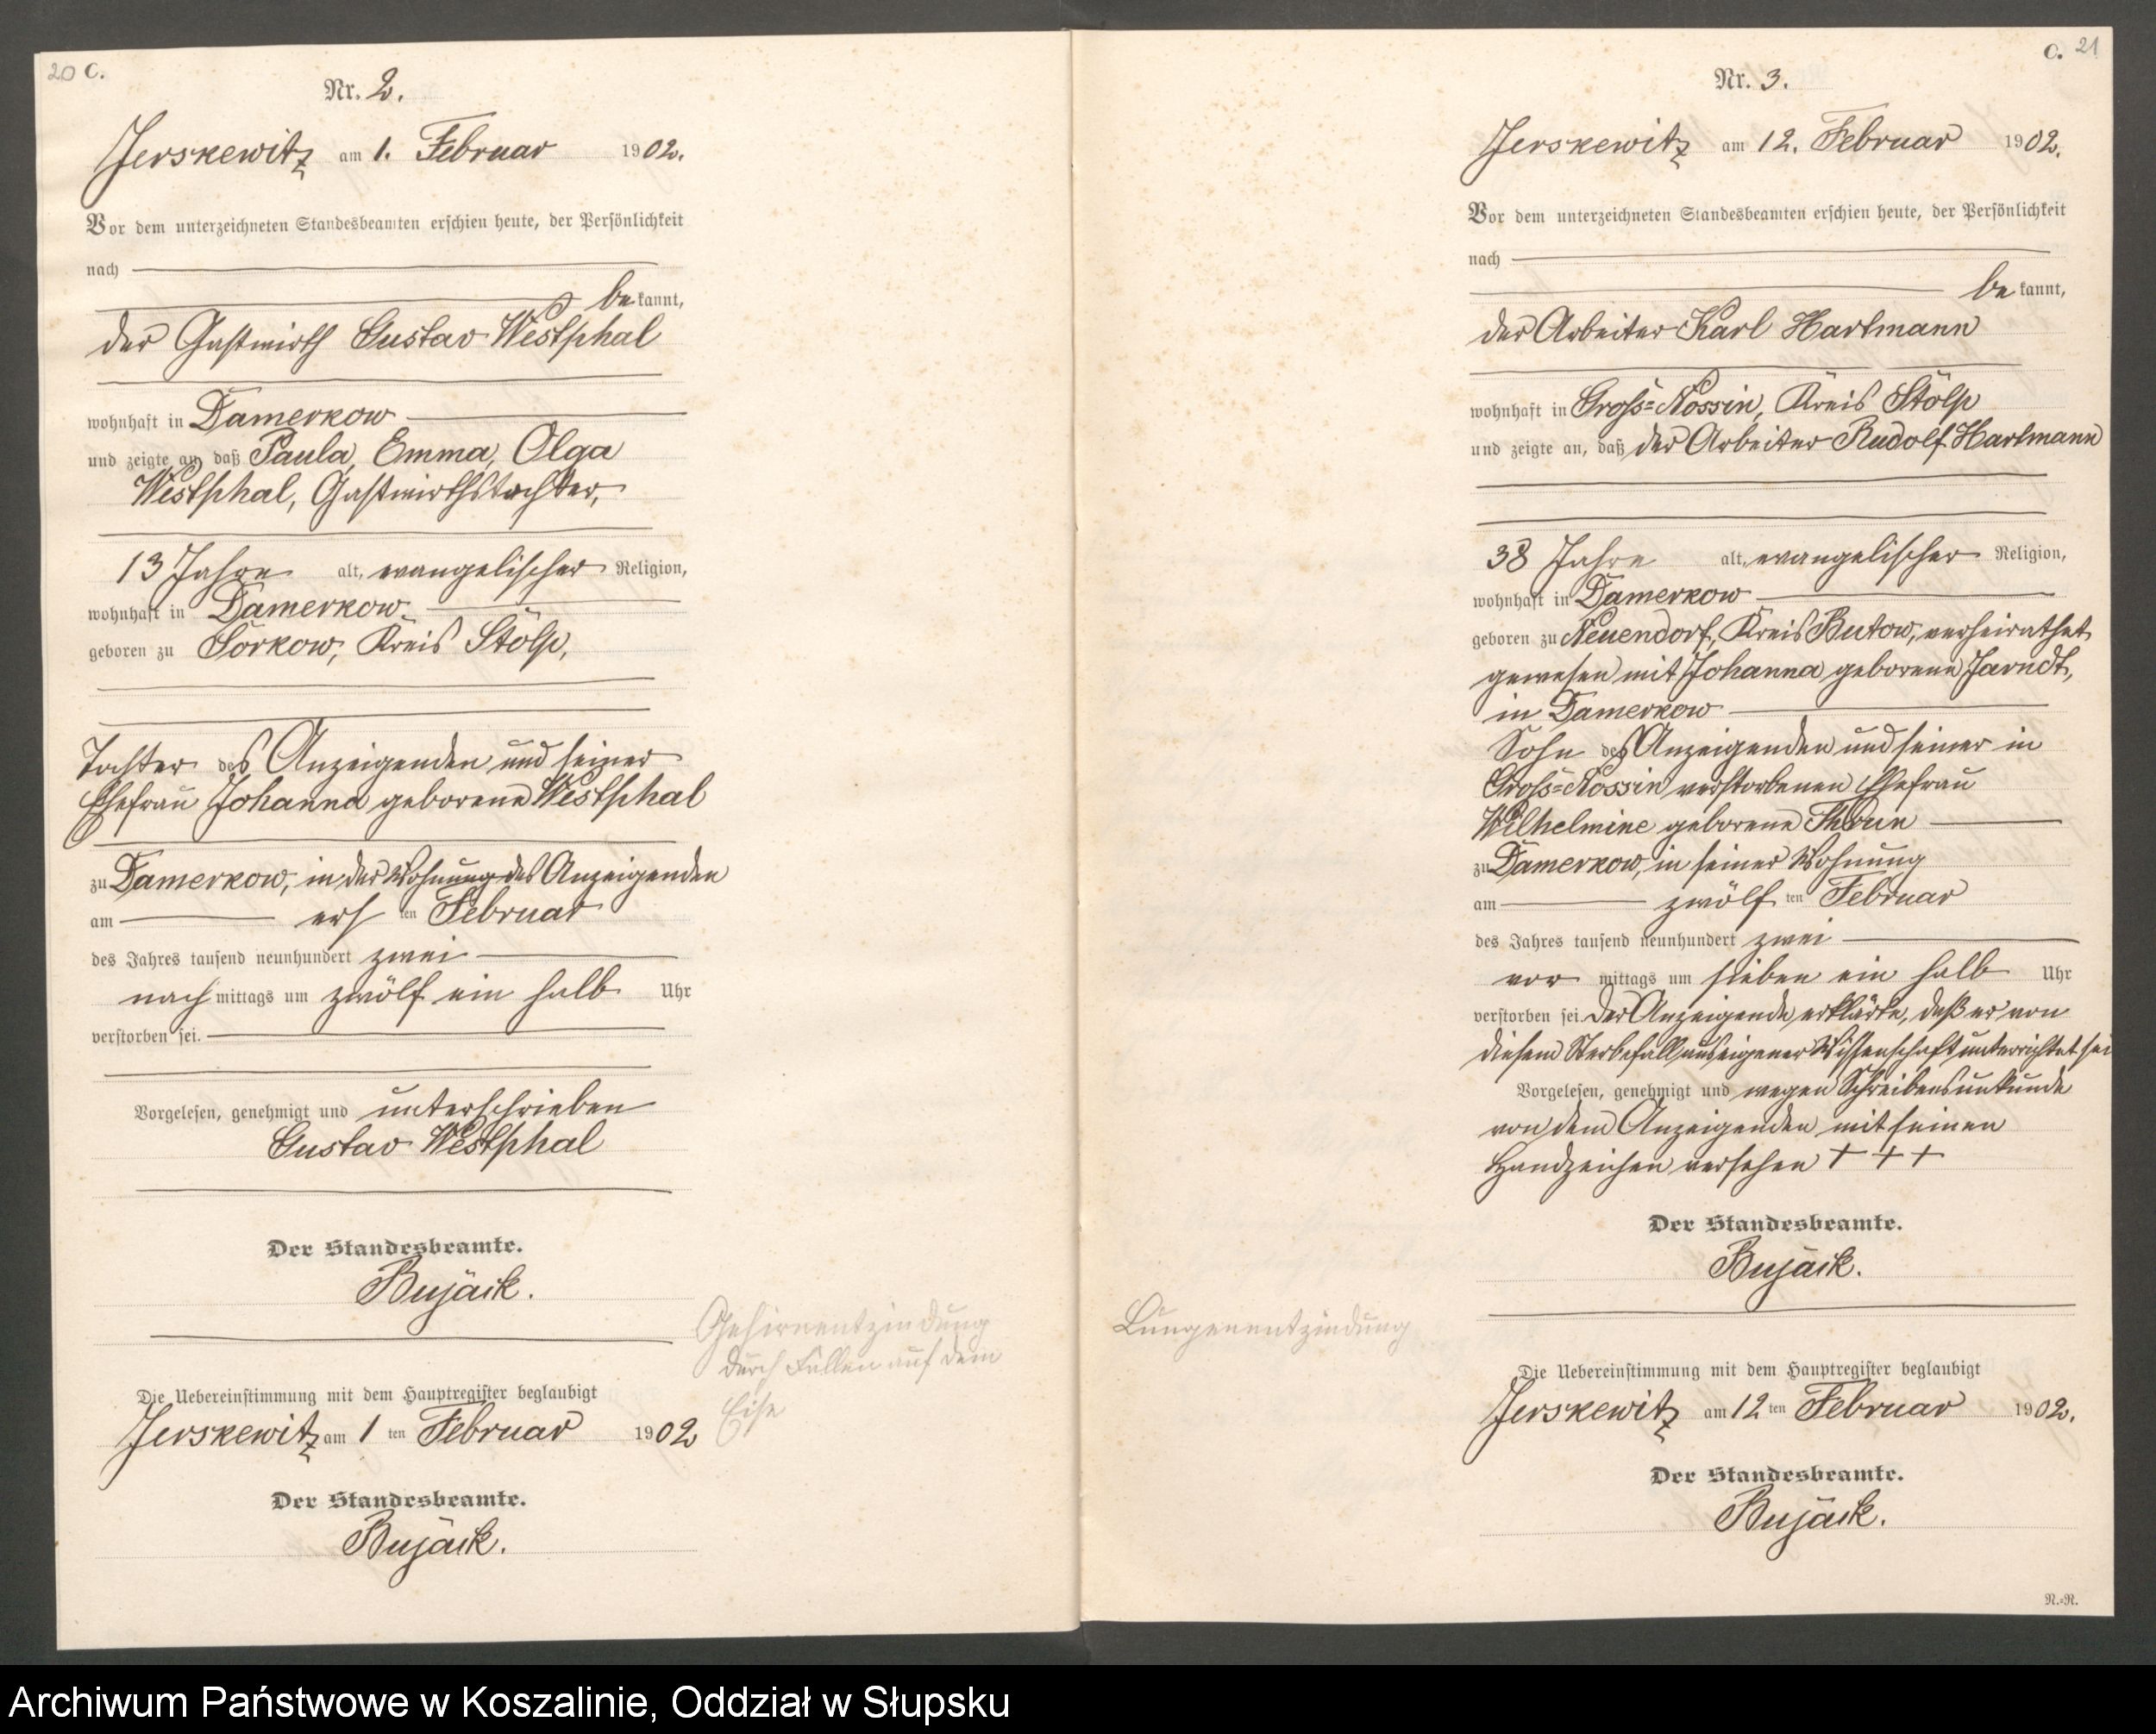 20 C.
Nr. 2.
Jerskewitz am 1. Februar 1902.
Vor dem unterzeichneten Standesbeamten erschien heute, der Persönlichkeit
nach
bekannt,
der Gastwirth Gustav Westphal
wohnhaft in Damerkow
und zeigte an, daß Paula, Emma, Olga
Westphal, Gastwirthstochter,
13 Jahre alt, evangelischer Religion,
wohnhaft in Damerkow
geboren zu Sorkow, Kreis Stolp,
Tochter des Anzeigenden und seiner
Ehefrau Johanna geborene Westphal
zu Damerkow, in der Wohnung des Anzeigenden
am ersten Februar
des Jahres tausend neunhundert zwei
nachmittags um zwölf ein halb Uhr
verstorben sei.
Vorgelesen, genehmigt und unterschrieben
Gustav Westphal
Der Standesbeamte.
Bujack.
Gehirnentzündung
durch Fallen auf dem
Eise
Die Uebereinstimmung mit dem Hauptregister beglaubigt
Jerskewitz am 1ten Februar 1902
Der Standesbeamte.
Bujack.
C. 21
Nr. 3.
Jerskewitz am 12. Februar 1902.
Vor dem unterzeichneten Standesbeamten erschien heute, der Persönlichkeit
nach
bekannt,
der Arbeiter Karl Hartmann
wohnhaft in Gross-Nossin, Kreis Stolp
und zeigte an, daß der Arbeiter Rudolf Hartmann
38 Jahre alt, evangelischer Religion,
wohnhaft in Damerkow
geboren zu Neuendorf, Kreis Butow, verheirathet
gewesen mit Johanna geborene Jarndt,
in Damerkow
Sohn des Anzeigenden und seiner in
Gross-Nossin verstorbenen Ehefrau
Wilhelmine geborene
zu Damerkow, in seiner Wohnung
am zwölften Februar
des Jahres tausend neunhundert zwei
vormittags um sieben ein halb Uhr
verstorben sei. Der Anzeigende erklärte, daß er von
diesem Sterbefall aus eigener Wissenschaft unterrichtet sei
Vorgelesen, genehmigt und wegen Schreibensunkunde
von dem Anzeigenden mit seinen
Handzeichen versehen + + +
Der Standesbeamte.
Bujack.
Lungenentzündung
Die Uebereinstimmung mit dem Hauptregister beglaubigt
Jerskewitz am 12ten Februar 1902.
Der Standesbeamte.
Bujack.
N.-R.
Archiwum Państwowe w Koszalinie, Oddział w Słupsku